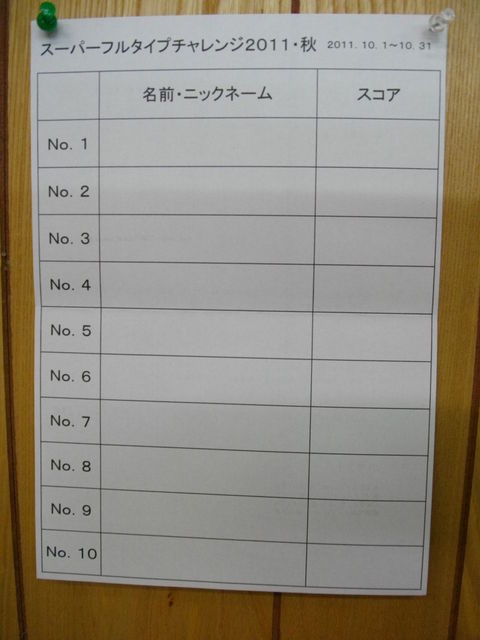 スーパーフルタイプチャレンジ2011・秋 2011.10.1～10.31
名前・ニックネーム スコア
No. 1
No. 2
No. 3
No. 4
No. 5
No. 6
No. 7
No. 8
No. 9
No. 10